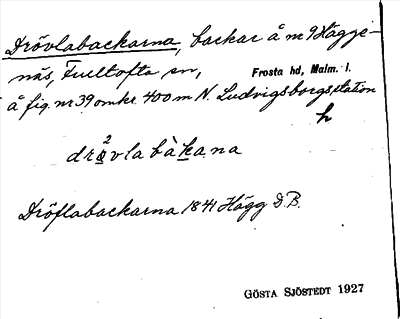 Drövlabackarna, backar å m 9 Hägge-
näs, Fulltofta sn, Frosta hd, Malm. l.
å fig. nr 39 omkr. 400 m N. Ludvigsborgs station
h
2
drövlabàkana
Dröflabackarna 1841 Hägg D.B.
GÖSTA SJÖSTEDT 1927